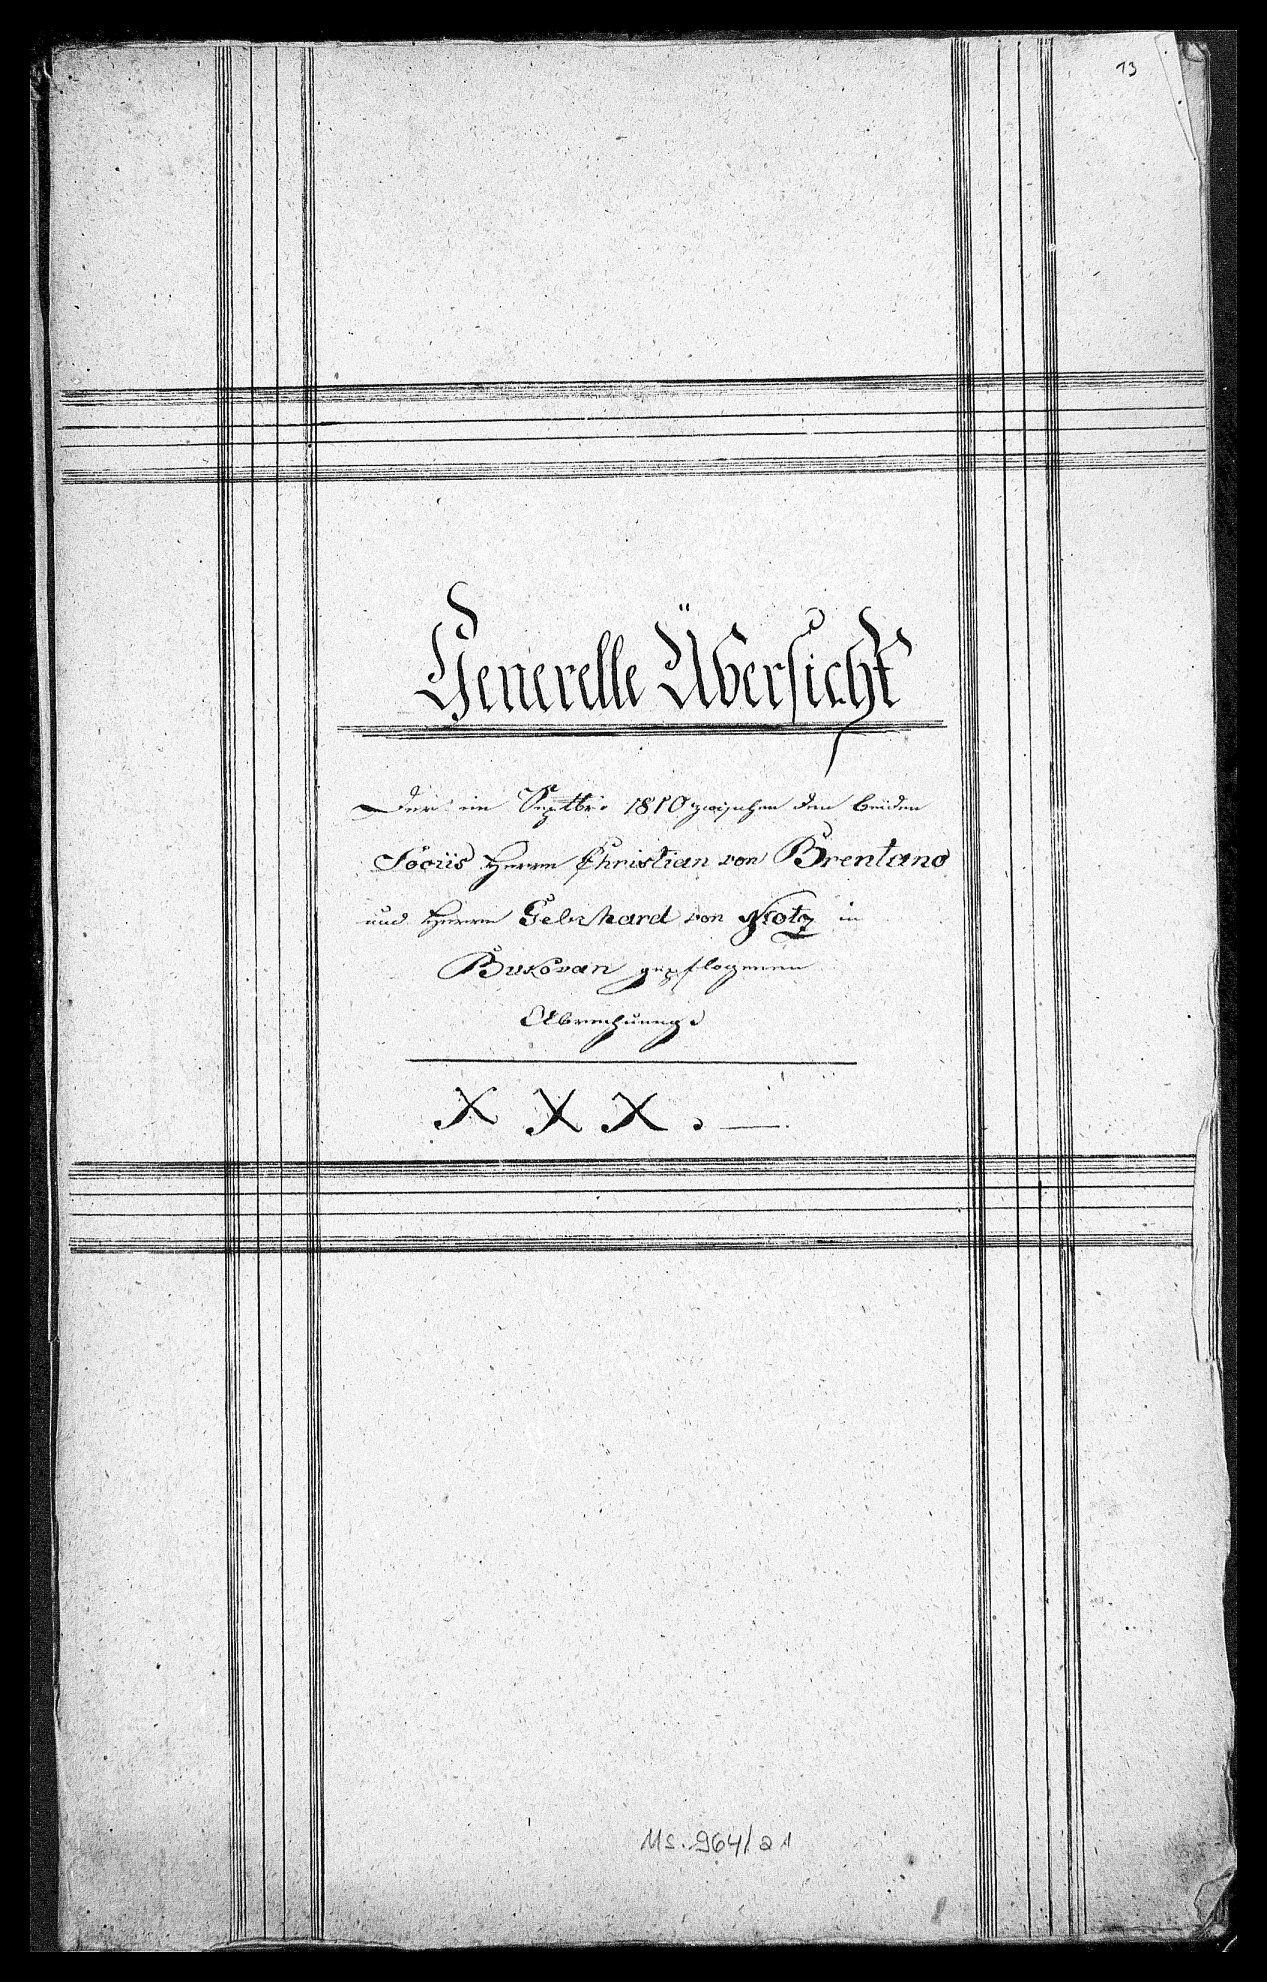 13
Generelle Übersicht
Der im Septbr: 1810 zwischen den beiden
Sociis Herrn Christian von Brentano
und Herrn Gebhard von Klotz in
Bukovan gepflogenen
Abrechnung.
X X X . —
Ms. 964/a 1